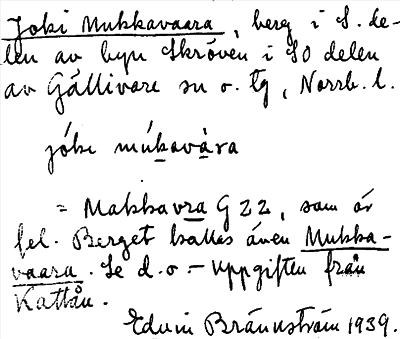 Joki Mukkavaara, berg i S. de-
len av byn Skröven i SO delen
av Gällivare sn o. tg, Norrb. l.
jóki múkavàra
= Makkavra G 22, som är
fel. Berget kallas även Mukka-
vaara. Se d.o. – Uppgiften från
Kattån.
Edvin Brännström 1939.